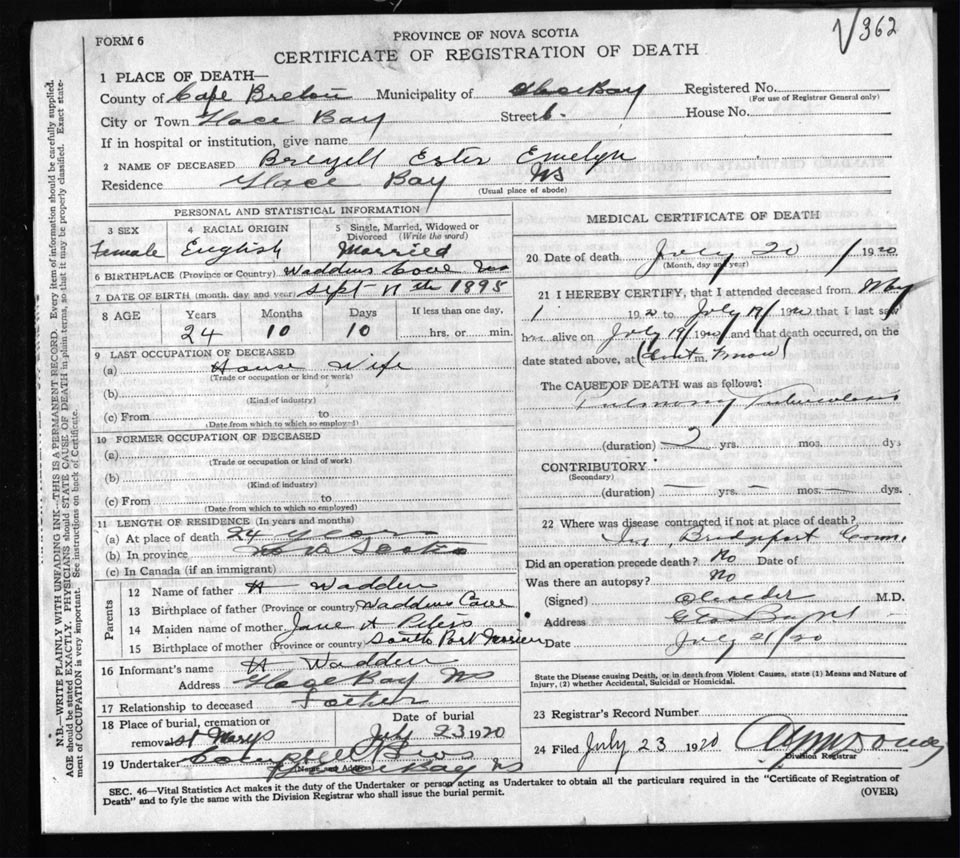 362
PROVINCE OF NOVA SCOTIA
FORM 6
CERTIFICATE OF REGISTRATION OF DEATH
1 PLACE OF DEATH—
County of Cape Breton Municipality of Glace Bay Registered No.
(For use of Registrar General only)
City or Town Glace Bay Street House No.
If in hospital or institution, give name
2 NAME OF DECEASED Ester Emelyn
Residence Glace Bay NS
(Usual place of abode)
PERSONAL AND STATISTICAL INFORMATION
3 SEX 4 RACIAL ORIGIN 5 Single, Married, Widowed or
Divorced (Write the word)
Female English Married
6 BIRTHPLACE (Province or Country) Waddens Cove
7 DATE OF BIRTH (month, day and year) Sept 11th 1895
8 AGE Years Months Days If less than one day,
24 10 10 hrs. or min.
9 LAST OCCUPATION OF DECEASED
(a) House Wife
(Trade or occupation or kind of work)
(b)
(Kind of industry)
(c) From to
(Date from which to which so employed)
10 FORMER OCCUPATION OF DECEASED
(a)
(Trade or occupation or kind of work)
(b)
(Kind of industry)
(c) From to
(Date from which to which so employed)
11 LENGTH OF RESIDENCE (In years and months)
(a) At place of death 24 years
(b) In province Nova Scotia
(c) In Canada (if an immigrant)
Parents
12 Name of father H Wadden
13 Birthplace of father (Province or country) Waddens Cove
14 Maiden name of mother Jane A Peters
15 Birthplace of mother (Province or country) South Port Morien
16 Informant's name H Wadden
Address Glace Bay NS
17 Relationship to deceased Father
18 Place of burial, cremation or Date of burial
removal St Marys July 23 1920
19 Undertaker
(Name and Address) Glace Bay NS
MEDICAL CERTIFICATE OF DEATH
20 Date of death July 20 1920
(Month, day and year)
21 I HEREBY CERTIFY, that I attended deceased from May
1 1920 to July 19 1920 that I last saw
her alive on July 19 1920 and that death occurred, on the
date stated above, at (dont m. know)
The CAUSE OF DEATH was as follows:
Pulmonary Tuberculosis
(duration) 2 yrs. mos. dys
CONTRIBUTORY
(Secondary)
(duration) — yrs. — mos. — dys.
22 Where was disease contracted if not at place of death?
In Bridgeport Conn
Did an operation precede death? No Date of
Was there an autopsy? No
(Signed) M.D.
Address Glace Bay NS
Date July 21/20
State the Disease causing Death, or in death from Violent Causes, state (1) Means and Nature of
Injury, (2) whether Accidental, Suicidal or Homicidal.
23 Registrar's Record Number
24 Filed July 23 1920
Division Registrar
SEC. 46—Vital Statistics Act makes it the duty of the Undertaker or person acting as Undertaker to obtain all the particulars required in the "Certificate of Registration of
Death" and to fyle the same with the Division Registrar who shall issue the burial permit. (OVER)
N.B.—WRITE PLAINLY WITH UNFADING INK—THIS IS A PERMANENT RECORD. Every item of information should be carefully supplied.
AGE should be stated EXACTLY. PHYSICIANS should STATE CAUSE OF DEATH in plain terms, so that it may be properly classified. Exact state-
ment of OCCUPATION is very important. See instructions on back of Certificate.